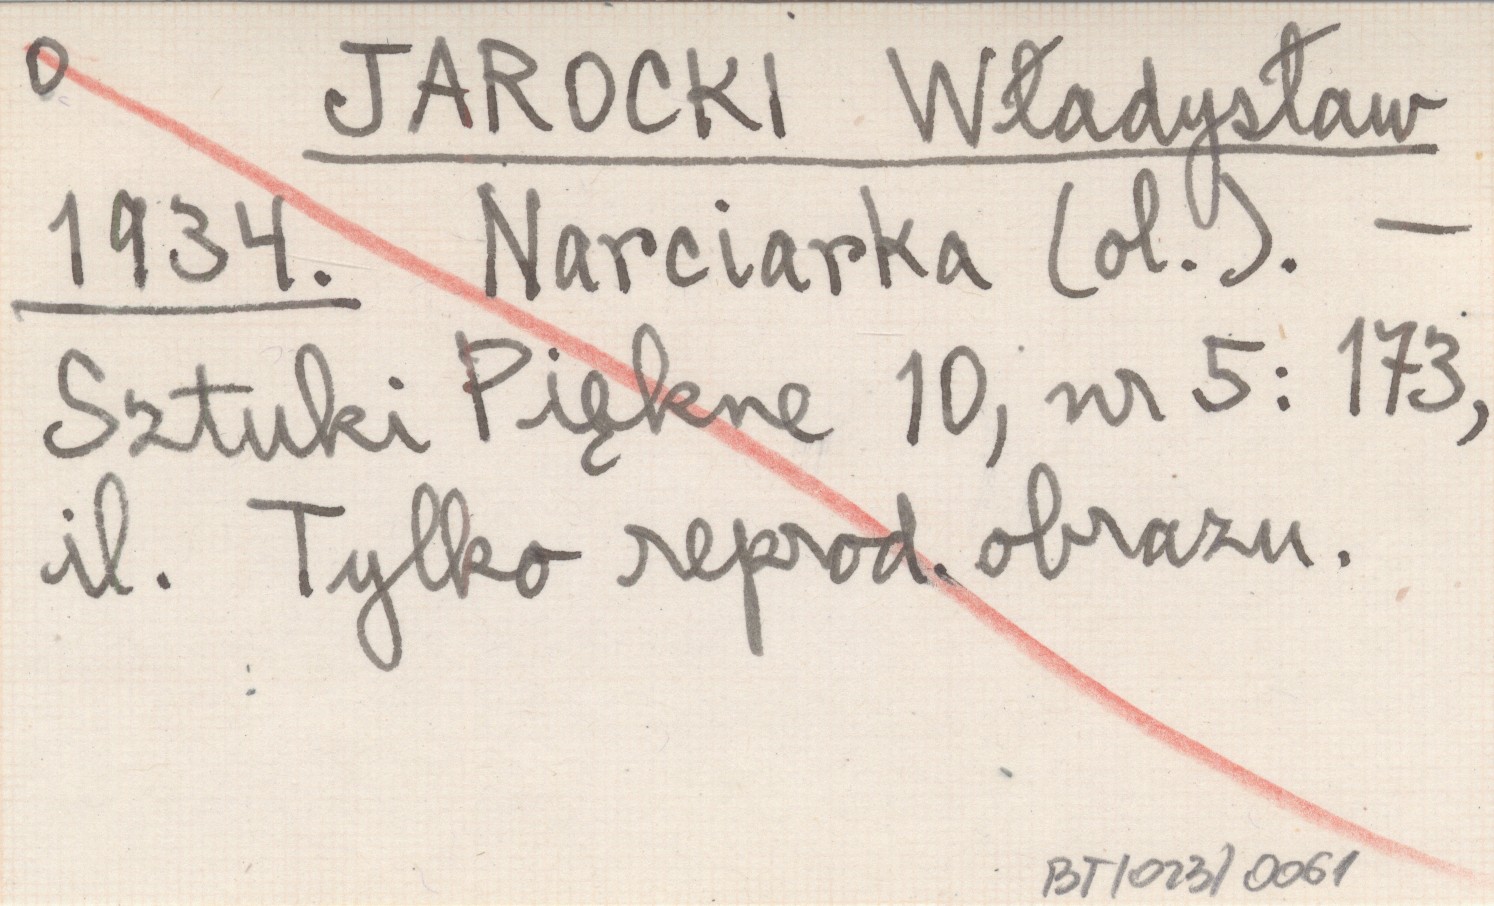 O JAROCKI Władysław
1934. Narciarka (ol.). —
Sztuki Piękne 10, nr 5: 173,
il. Tylko reprod. obrazu.
BT/023/0061